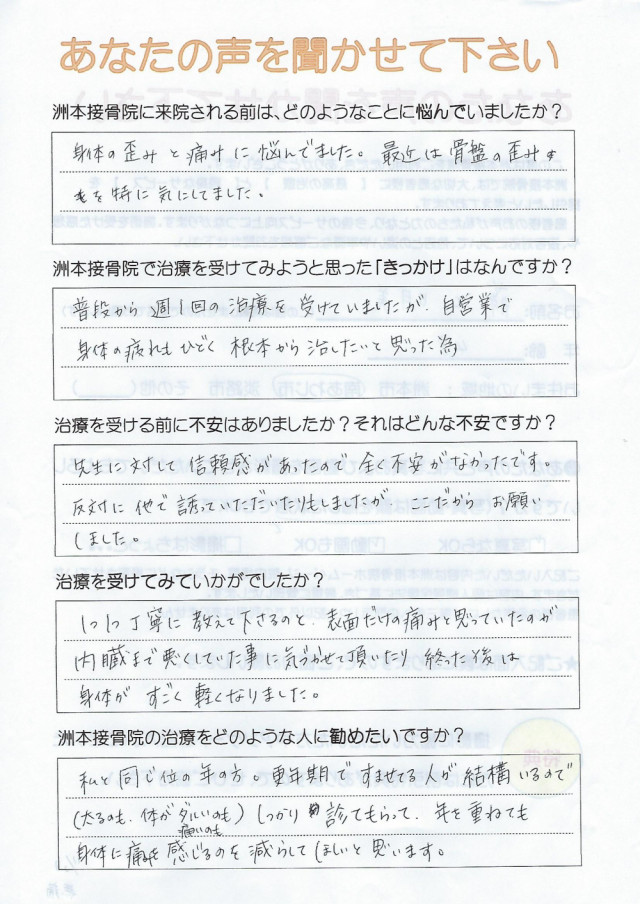 あなたの声を聞かせて下さい
洲本接骨院に来院される前は、どのようなことに悩んでいましたか？
身体の歪みと痛みに悩んでました。最近は骨盤の歪み
を特に気にしてました。
洲本接骨院で治療を受けてみようと思った「きっかけ」はなんですか？
普段から週1回の治療を受けていましたが、自営業で
身体の疲れもひどく根本から治したいと思った為
治療を受ける前に不安はありましたか？それはどんな不安ですか？
先生に対して信頼感があったので全く不安がなかったです。
反対に他で誘っていただいたりもしましたが ここだからお願い
しました。
治療を受けてみていかがでしたか？
1つ1つ丁寧に教えて下さるのと、表面だけの痛みと思っていたのが
内臓まで悪くしていた事に気づかせて頂いたり 終った後は
身体が すごく軽くなりました。
洲本接骨院の治療をどのような人に勧めたいですか？
私と同じ位の年の方。更年期ですませてる人が結構いるので
(太るのも、体がダルいのも) しっかり診てもらって、年を重ねても
痛いのも
身体に痛を感じるのを減らしてほしいと思います。